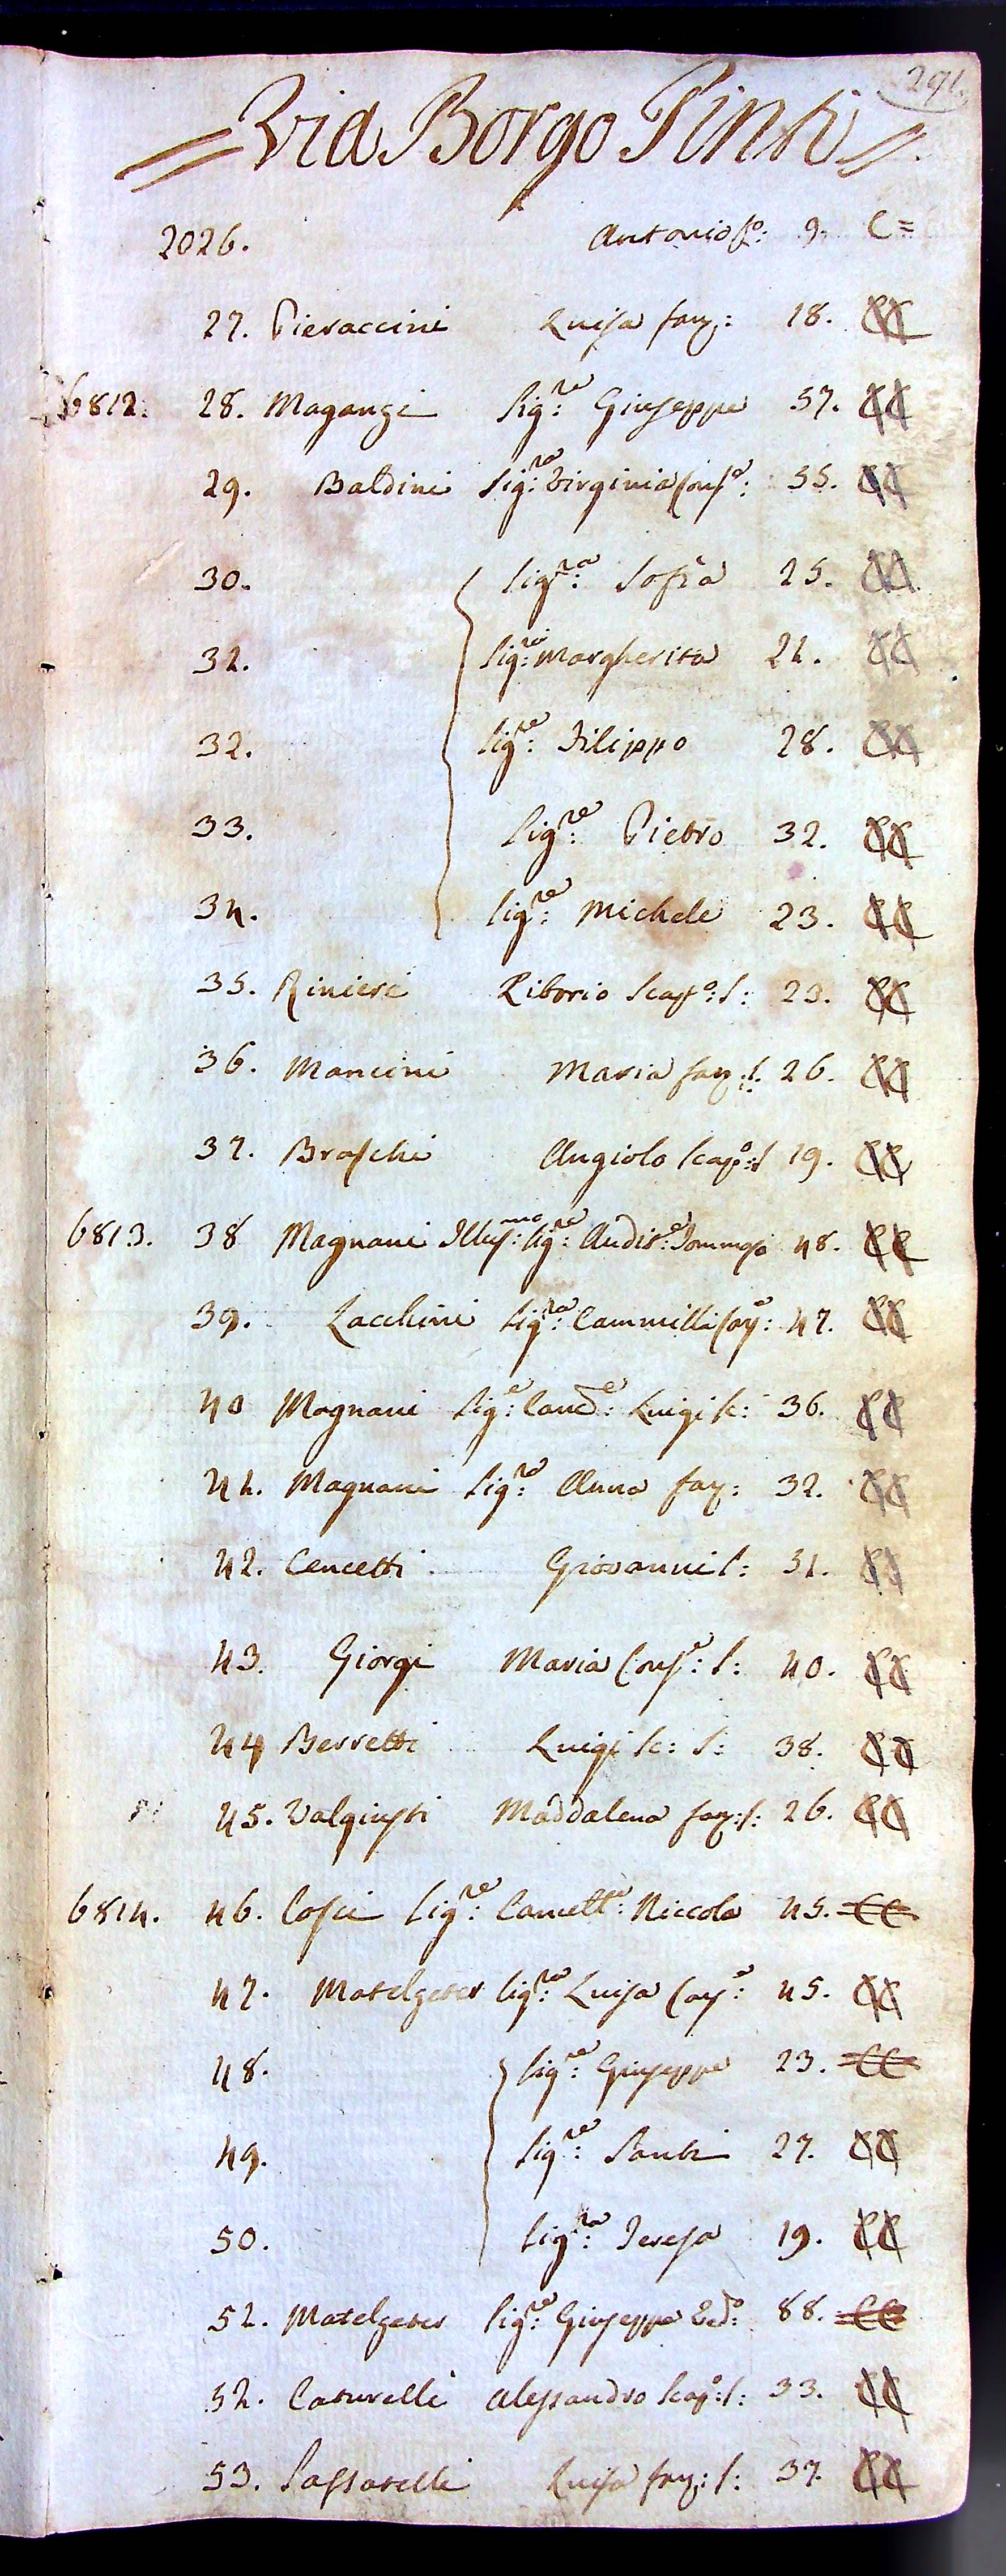 291.
= Via Borgo Pinti =
2026. Antonio f.o: 9. C=
27. Pieraccini Luisa fan: 18. CC
6812. 28. Maganzi Sig:re Giuseppe 57. CC
29. Baldini Sig:ra Virginia Cons:e 55. CC
30. Sig:ra Sofia 25. CC
31. Sig:ra Margherita 21. CC
32. Sig:re Filippo 28. CC
33. Sig:re Pietro 32. CC
34. Sig:re Michele 23. CC
35. Rinieri Liborio Scap:o S: 23. CC
36. Mancini Maria fan: S: 26. CC
37. Braschi Angiolo Scap:o S 19. CC
6813. 38 Magnani Illus:mo Sig:re Audit:e Tommaso 48. CC
39. Lacchini Sig:ra Cammilla Con:e 47. CC
40 Magnani Sig:e Canc:e Luigi Sc: 36. CC
41. Magnani Sig:ra Anna fan: 32. CC
42. Cencetti Giovanni S: 31. CC
43. Giorgi Maria Cons:e S: 40. CC
44 Berretti Luigi Sc: S: 38. CC
45. Valgiusti Maddalena fan: S: 26. CC
6814. 46. Cosci Sig:re Niccola 45. CC
47. Matelgeter Sig:ra Luisa Con:e 45. CC
48. Sig:re Giuseppe 23. CC
49. Sig:re Santi 27. CC
50. Sig:ra Teresa 19. CC
51. Matelgeter Sig:re Giuseppe Ved:o 88. CC
52. Caturelli Alessandro Scap:o S: 33. CC
53. Passarelli Luisa fan: S: 37. CC